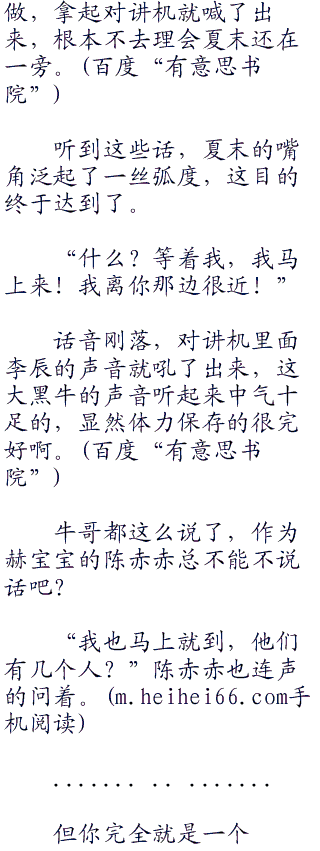 做，拿起对讲机就喊了出
来，根本不去理会夏末还在
一旁。(百度“有意思书
院”)
听到这些话，夏末的嘴
角泛起了一丝弧度，这目的
终于达到了。
“什么？等着我，我马
上来！我离你那边很近！”
话音刚落，对讲机里面
李辰的声音就吼了出来，这
大黑牛的声音听起来中气十
足的，显然体力保存的很完
好啊。(百度“有意思书
院”)
牛哥都这么说了，作为
赫宝宝的陈赤赤总不能不说
话吧？
“我也马上就到，他们
有几个人？”陈赤赤也连声
的问着。(m.heihei66.com手
机阅读)
....... .. .......
但你完全就是一个